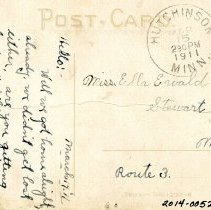 POST CARD
HUTCHINSON
15
230PM
1911
MINN.
Miss. Ella Ewald
Stewart
M
Route 3.
2014-0052
March 14, 11
Hello:
Well we got home alright
already we didn't get lost
either. are you getting